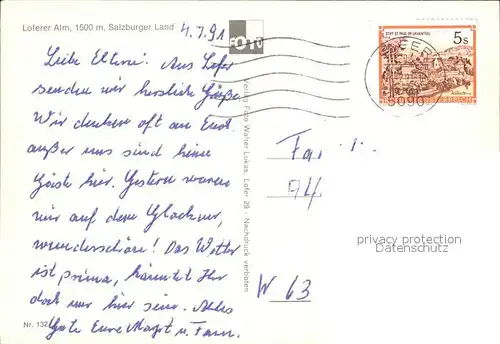 Loferer Alm, 1500 m, Salzburger Land
4.7.91
FOTO
Liebe Eltern! Aus Lofer
senden wir herzliche Grüße
Wir denken oft an Euch.
außer uns sind keine
Gäste hier. Gestern waren
wir auf dem Glockner,
wunderschön! Das Wetter
ist prima, könntet Ihr
doch nur hier sein. Alles
Gute Eure u. Fam.
Nr. 132
Verlag Foto Walter Lukas, Lofer 29 - Nachdruck verboten
STIFT ST. PAUL IM LAVANTTAL
5s
REPUBLIK ÖSTERREICH
5090
Fa
A4
W 63
privacy protection
Datenschutz